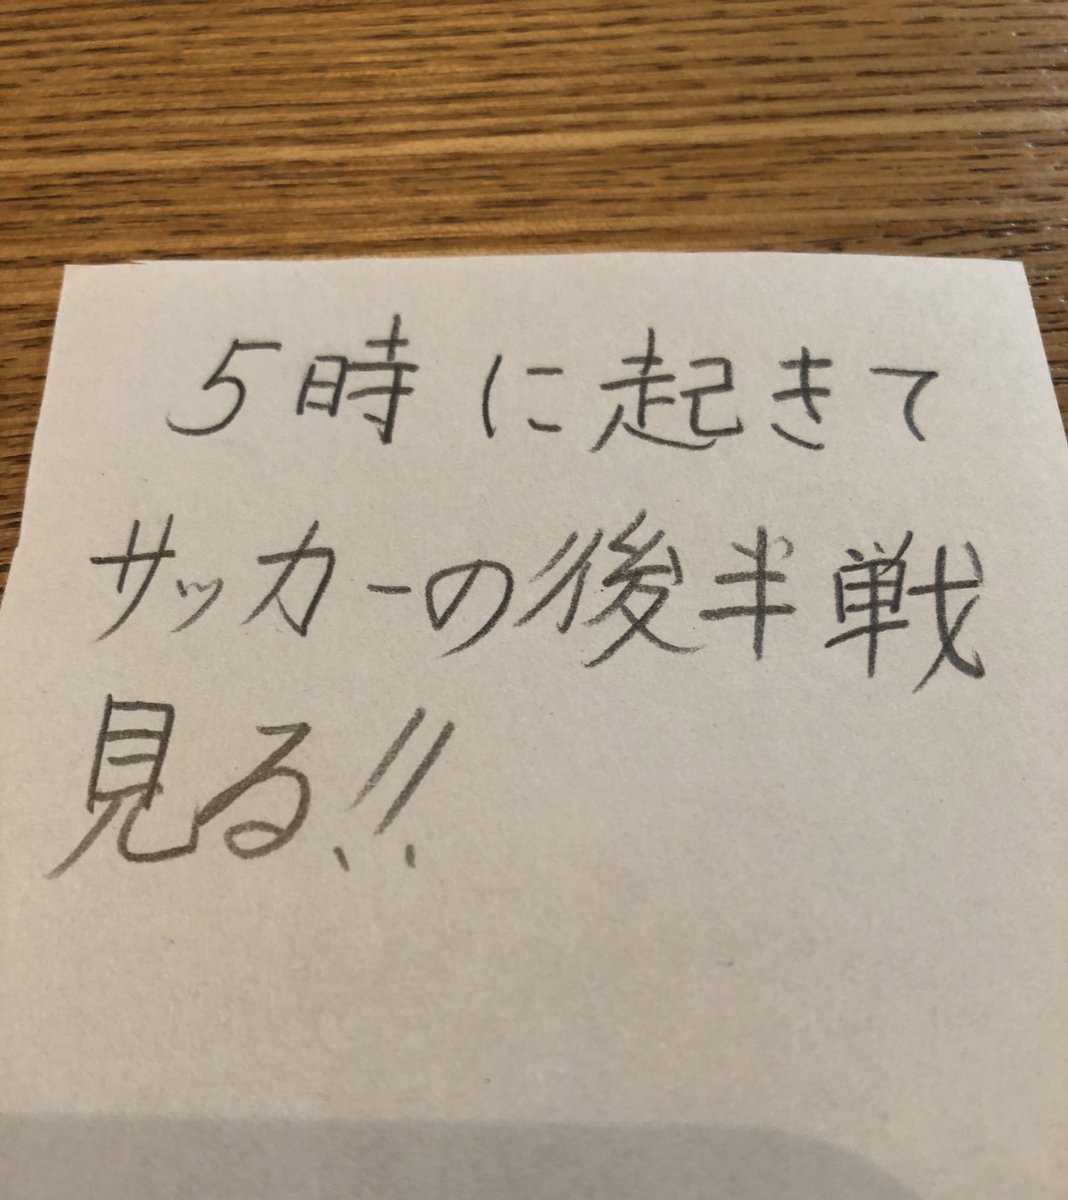 5時に起きて
サッカーの後半戦
見る!!